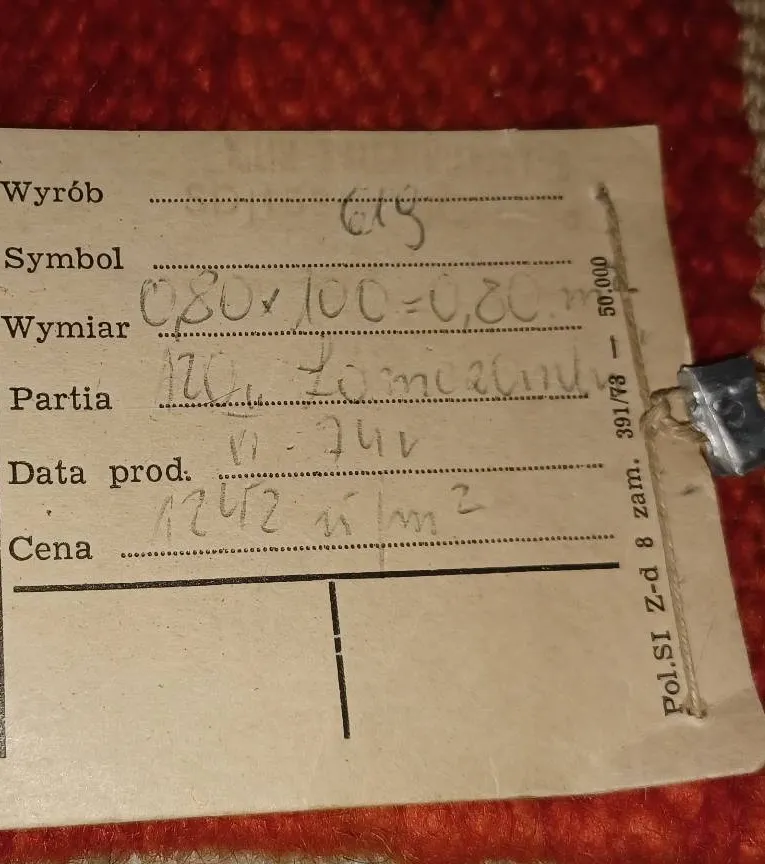 Wyrób
619
Symbol
Wymiar 0,80 x 100 = 0,80 m
Partia 120
Data prod. VI - 74 r
Cena 1242 zł/m²
Pol.SI Z-d 8 zam. 391/73 — 50.000